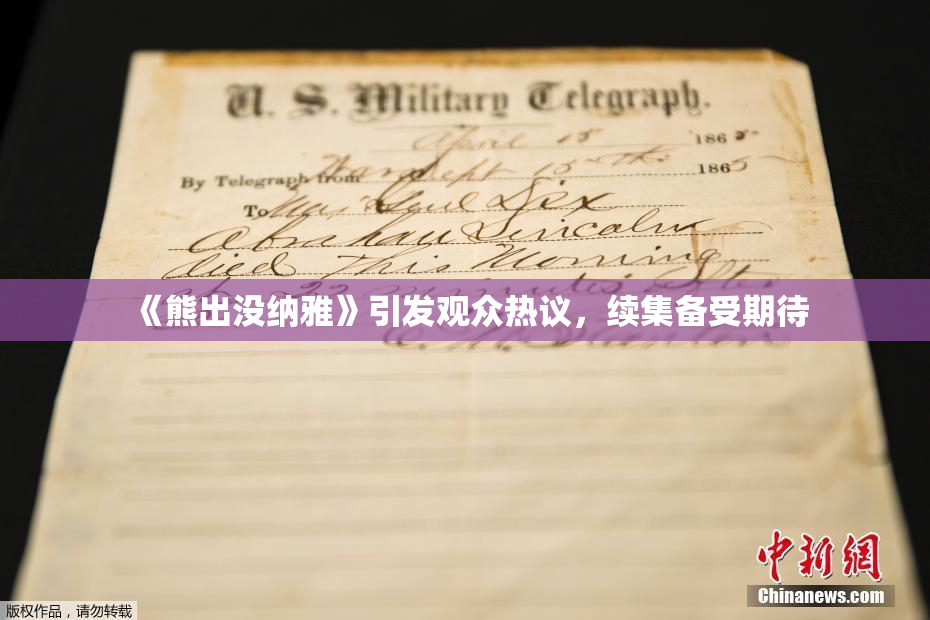 U. S. Military Telegraph.
April 15 1865
By Telegraph from War Dept 15th 1865
To Maj Genl Dix
Abraham Lincoln
died This Morning
22 minutes after
《熊出没纳雅》引发观众热议，续集备受期待
E. M. Stanton
中新网
Chinanews.com
版权作品，请勿转载